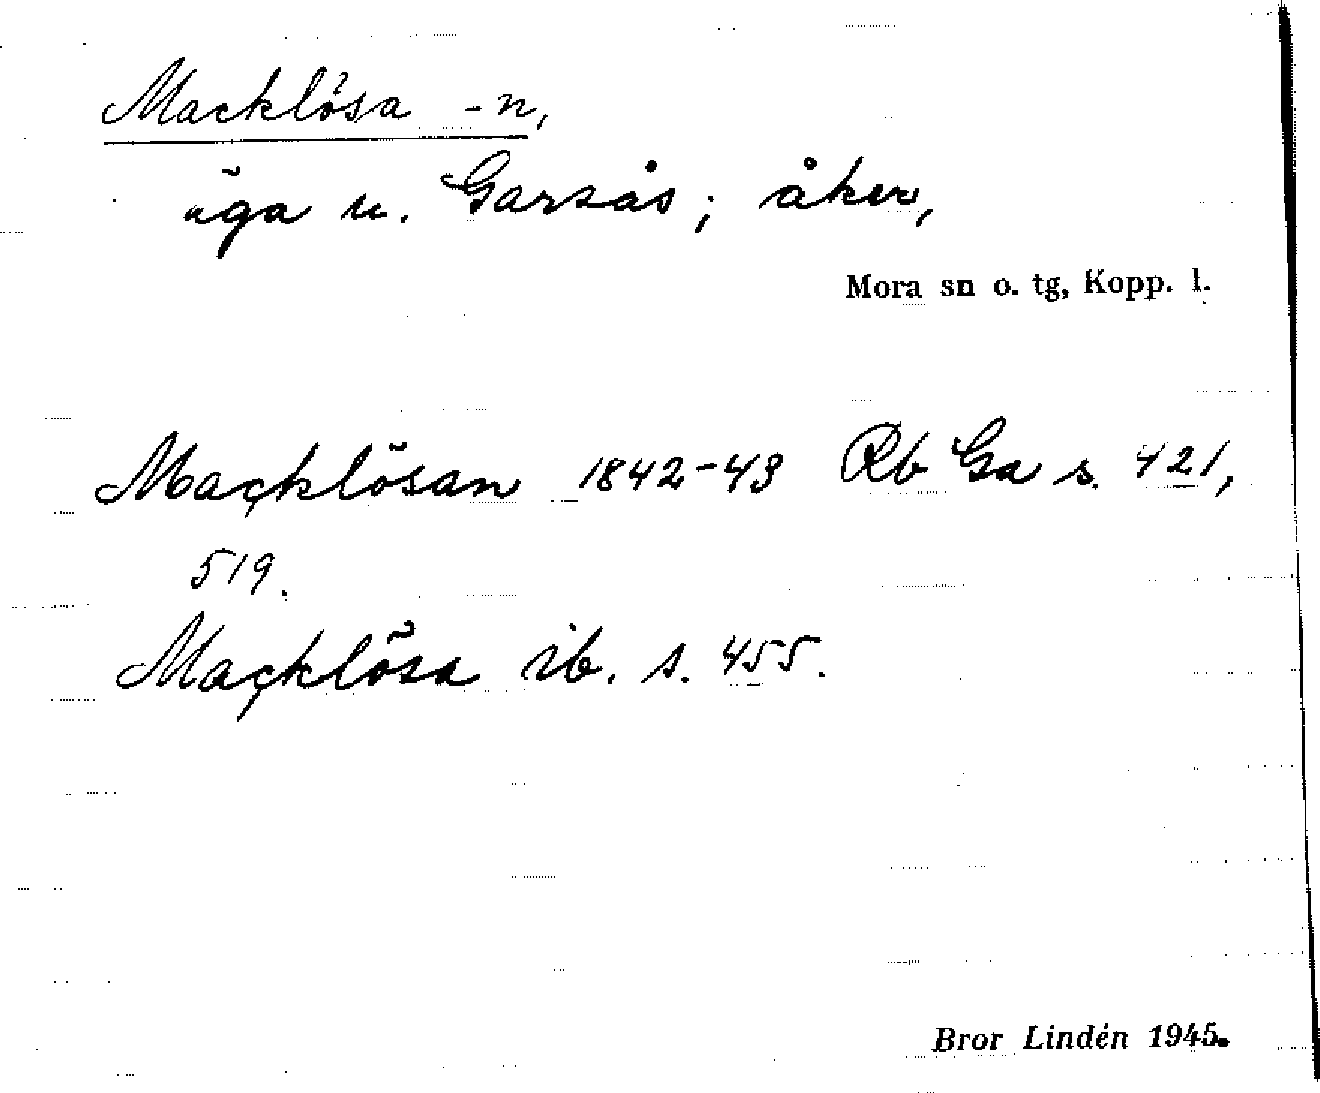 Macklösa -n,
äga u. Garsås; åker,
Mora sn o. tg, Kopp. l.
Macklösan 1842-43 Rb Ga s. 421,
519.
Macklösa ib. s. 455.
Bror Lindén 1945.